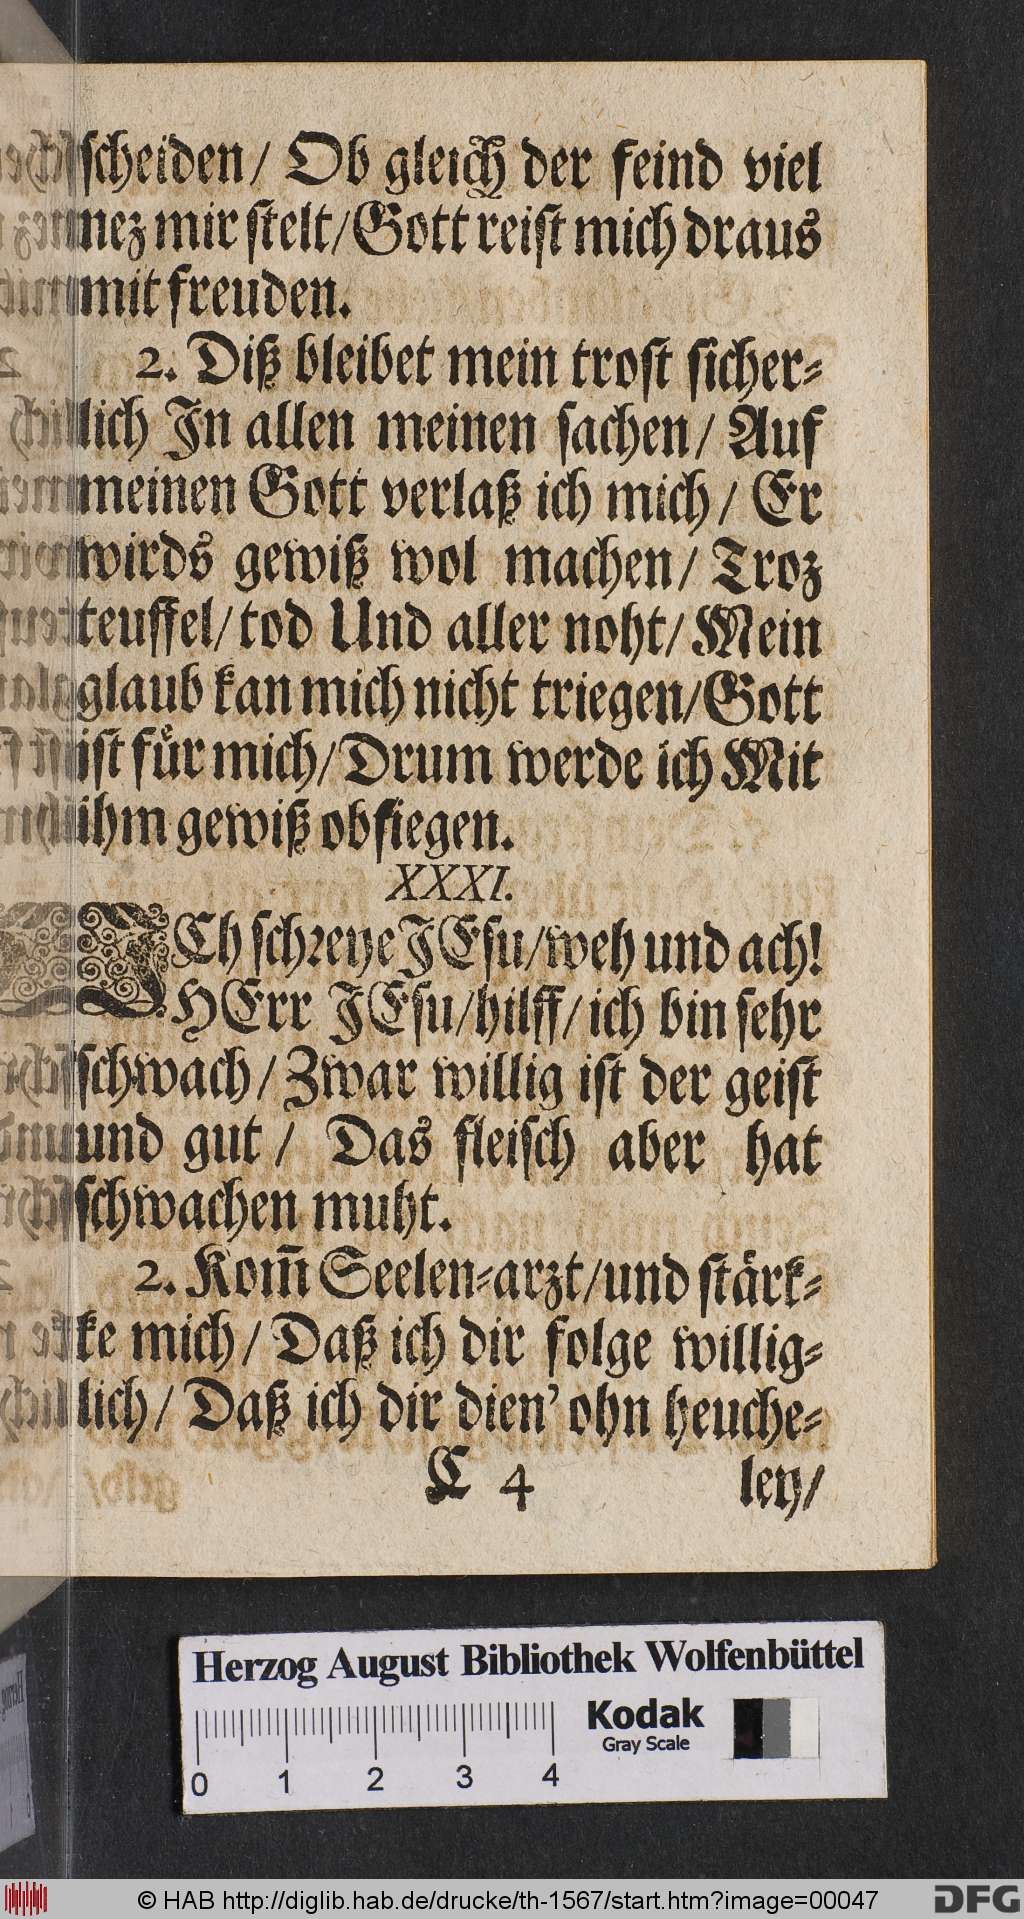 scheiden/ Ob gleich der feind viel
nez mir stelt/Gott reist mich draus
mit freuden.
2. Diß bleibet mein trost sicher-
lich In allen meinen sachen/ Auf
meinen Gott verlaß ich mich/ Er
wirds gewiß wol machen/ Troz
teuffel/ tod Und aller noht/ Mein
glaub kan mich nicht triegen/Gott
ist für mich/ Drum werde ich Mit
ihm gewiß obsiegen.
XXXI.
ICh schreye JEsu/weh und ach!
HErr JEsu/hilff/ich bin sehr
schwach/ Zwar willig ist der geist
und gut/ Das fleisch aber hat
schwachen muht.
2. Kom̃ Seelen-arzt/und stärk-
ke mich/ Daß ich dir folge willig-
lich/ Daß ich dir dien' ohn heuche-
C 4 ley/
Herzog August Bibliothek Wolfenbüttel
Kodak
Gray Scale
0 1 2 3 4
© HAB http://diglib.hab.de/drucke/th-1567/start.htm?image=00047
DFG